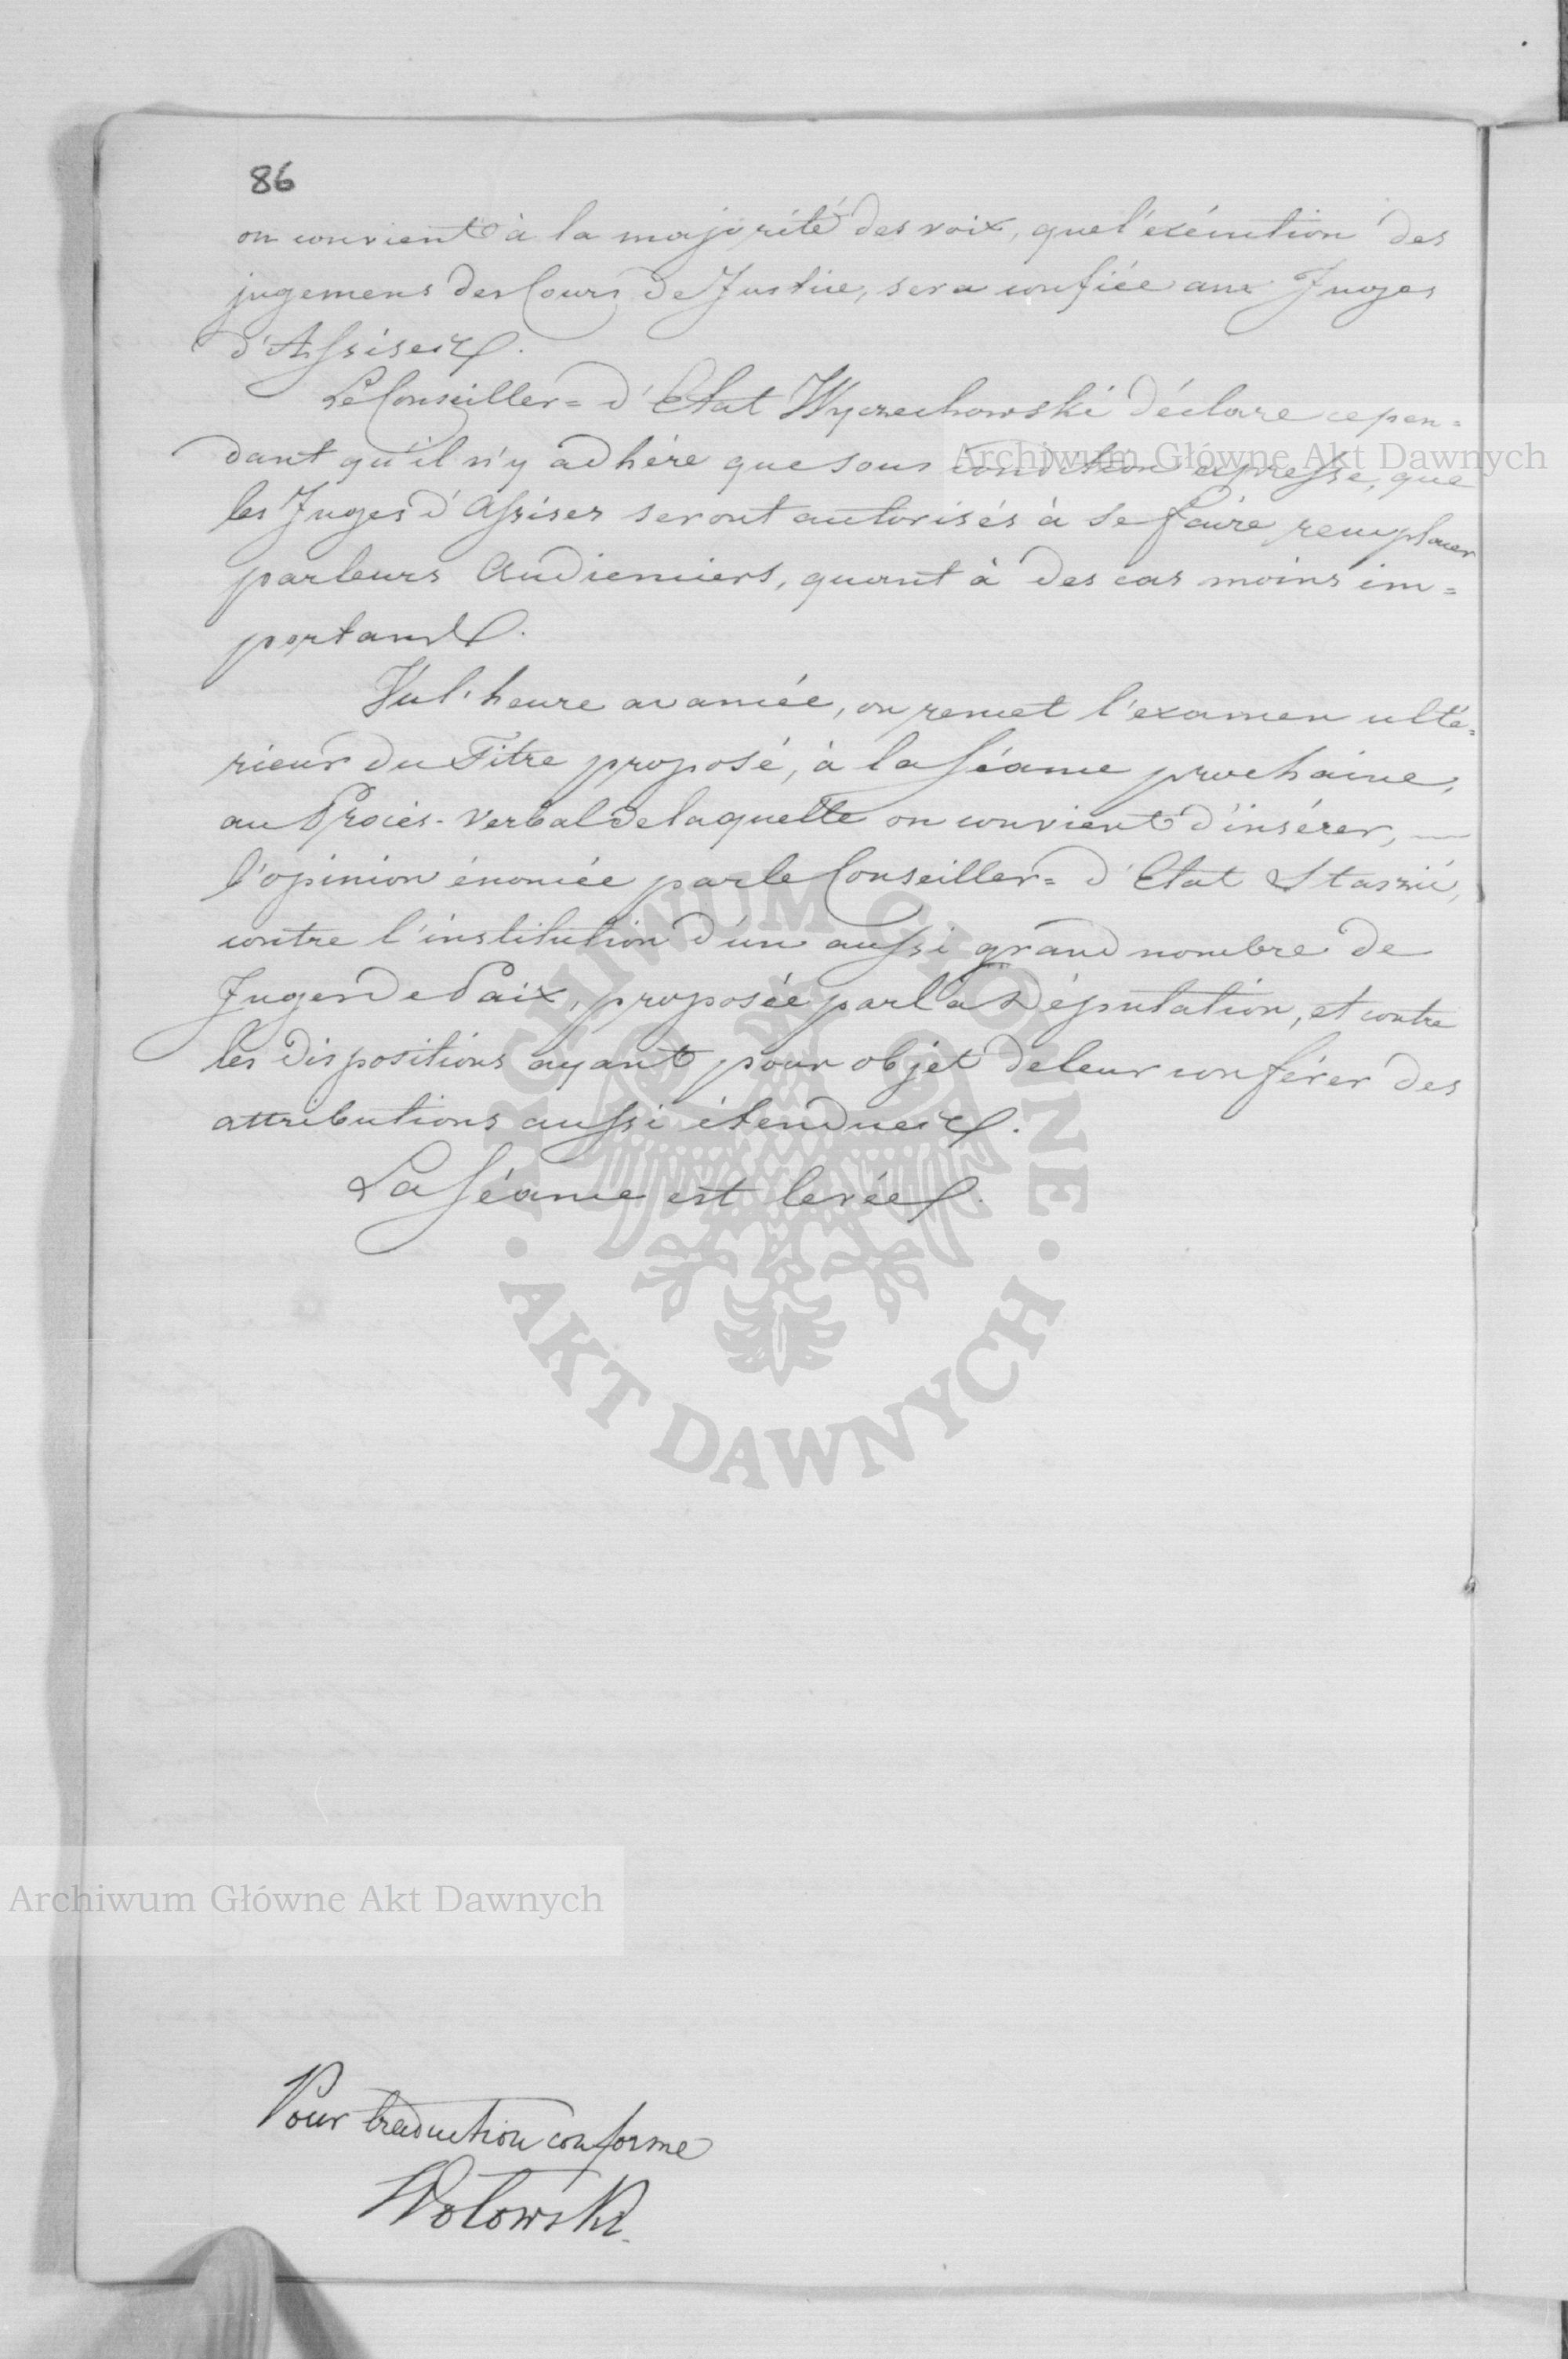 86
on convient à la majorité des voix, que l'exécution des
jugemens des Cours de Justice, sera confiée aux Juges
d'Assises.
Le Conseiller = d'Etat Wyczechowski déclare cepen=
dant qu'il n'y adhère que sous condition expresse, que
les Juges d'Assises seront autorisés à se faire remplacer
par leurs Audienciers, quant à des cas moins im=
portans.
Vu l'heure avancée, on remet l'examen ulté=
rieur du Titre proposé, à la Séance prochaine,
au Procès-Verbal de laquelle on convient d'insérer, —
l'opinion énoncée par le Conseiller = d'Etat Staszic,
contre l'institution d'un aussi grand nombre de
Juges de Paix, proposée par la Députation, et contre
les dispositions ayant pour objet de leur conférer des
attributions aussi étendues.
La Séance est levée.
Pour traduction conforme
Wolowski.
Archiwum Główne Akt Dawnych
Archiwum Główne Akt Dawnych
ARCHIWUM GŁÓWNE
AKT DAWNYCH